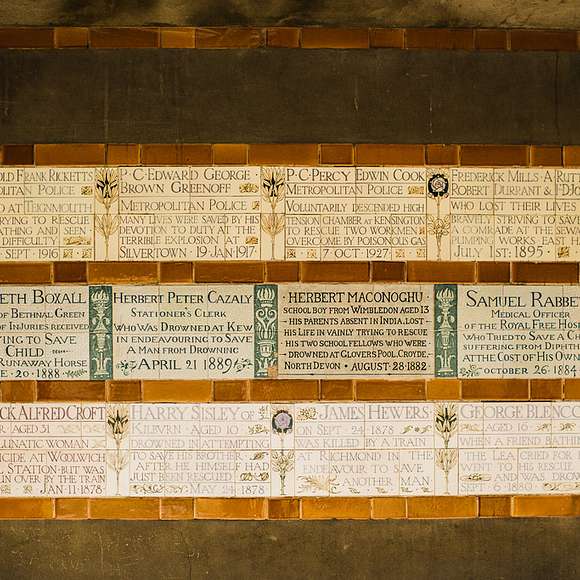 OLD FRANK RICKETTS
POLITAN POLICE
TEIGNMOUTH
TRYING TO RESCUE
BATHING AND SEEN
DIFFICULTY
SEPT 1916
P·C·EDWARD GEORGE
BROWN GREENOFF
METROPOLITAN POLICE
MANY LIVES WERE SAVED BY HIS
DEVOTION TO DUTY AT THE
TERRIBLE EXPLOSION AT
SILVERTOWN · 19·JAN·1917·
P·C·PERCY EDWIN COOK
METROPOLITAN POLICE
VOLUNTARILY DESCENDED HIGH
TENSION CHAMBER AT KENSINGTON
TO RESCUE TWO WORKMEN
OVERCOME BY POISONOUS GAS
7 OCT 1927
FREDERICK MILLS · A · RUT
ROBERT DURRANT & F·D·JO
WHO LOST THEIR LIVES
BRAVELY STRIVING TO SAVE
A COMRADE AT THE SEWA
PUMPING WORKS EAST H
JULY 1ST 1895
ETH BOXALL
OF BETHNAL GREEN
OF INJURIES RECEIVED
YING TO SAVE
CHILD
RUNAWAY HORSE
E · 20 · 1888
HERBERT PETER CAZALY
STATIONER'S CLERK
WHO WAS DROWNED AT KEW
IN ENDEAVOURING TO SAVE
A MAN FROM DROWNING
APRIL 21 1889
HERBERT MACONOGHU
SCHOOL BOY FROM WIMBLEDON AGED 13
HIS PARENTS ABSENT IN INDIA, LOST
HIS LIFE IN VAINLY TRYING TO RESCUE
HIS TWO SCHOOL FELLOWS WHO WERE
DROWNED AT GLOVERS POOL, CROYDE,
NORTH DEVON · AUGUST · 28 · 1882
SAMUEL RABBE
MEDICAL OFFICER
OF THE ROYAL FREE HOSP
WHO TRIED TO SAVE A CH
SUFFERING FROM DIPHTH
AT THE COST OF HIS OWN
OCTOBER 26 1884
CK ALFRED CROFT
AGED 31
LUNATIC WOMAN
ICIDE AT WOOLWICH
L STATION · BUT WAS
UN OVER BY THE TRAIN
JAN · 11 · 1878
HARRY SISLEY OF
KILBURN · AGED 10
DROWNED IN ATTEMPTING
TO SAVE HIS BROTHER
AFTER HE HIMSELF HAD
JUST BEEN RESCUED
MAY 24 1878
JAMES HEWERS
ON SEPT 24 1878
WAS KILLED BY A TRAIN
AT RICHMOND IN THE
ENDEAVOUR TO SAVE
ANOTHER MAN
GEORGE BLENCO
AGED 16
WHEN A FRIEND BATH
THE LEA CRIED FOR
WENT TO HIS RESCUE
AND WAS DROW
SEPT 6 1880